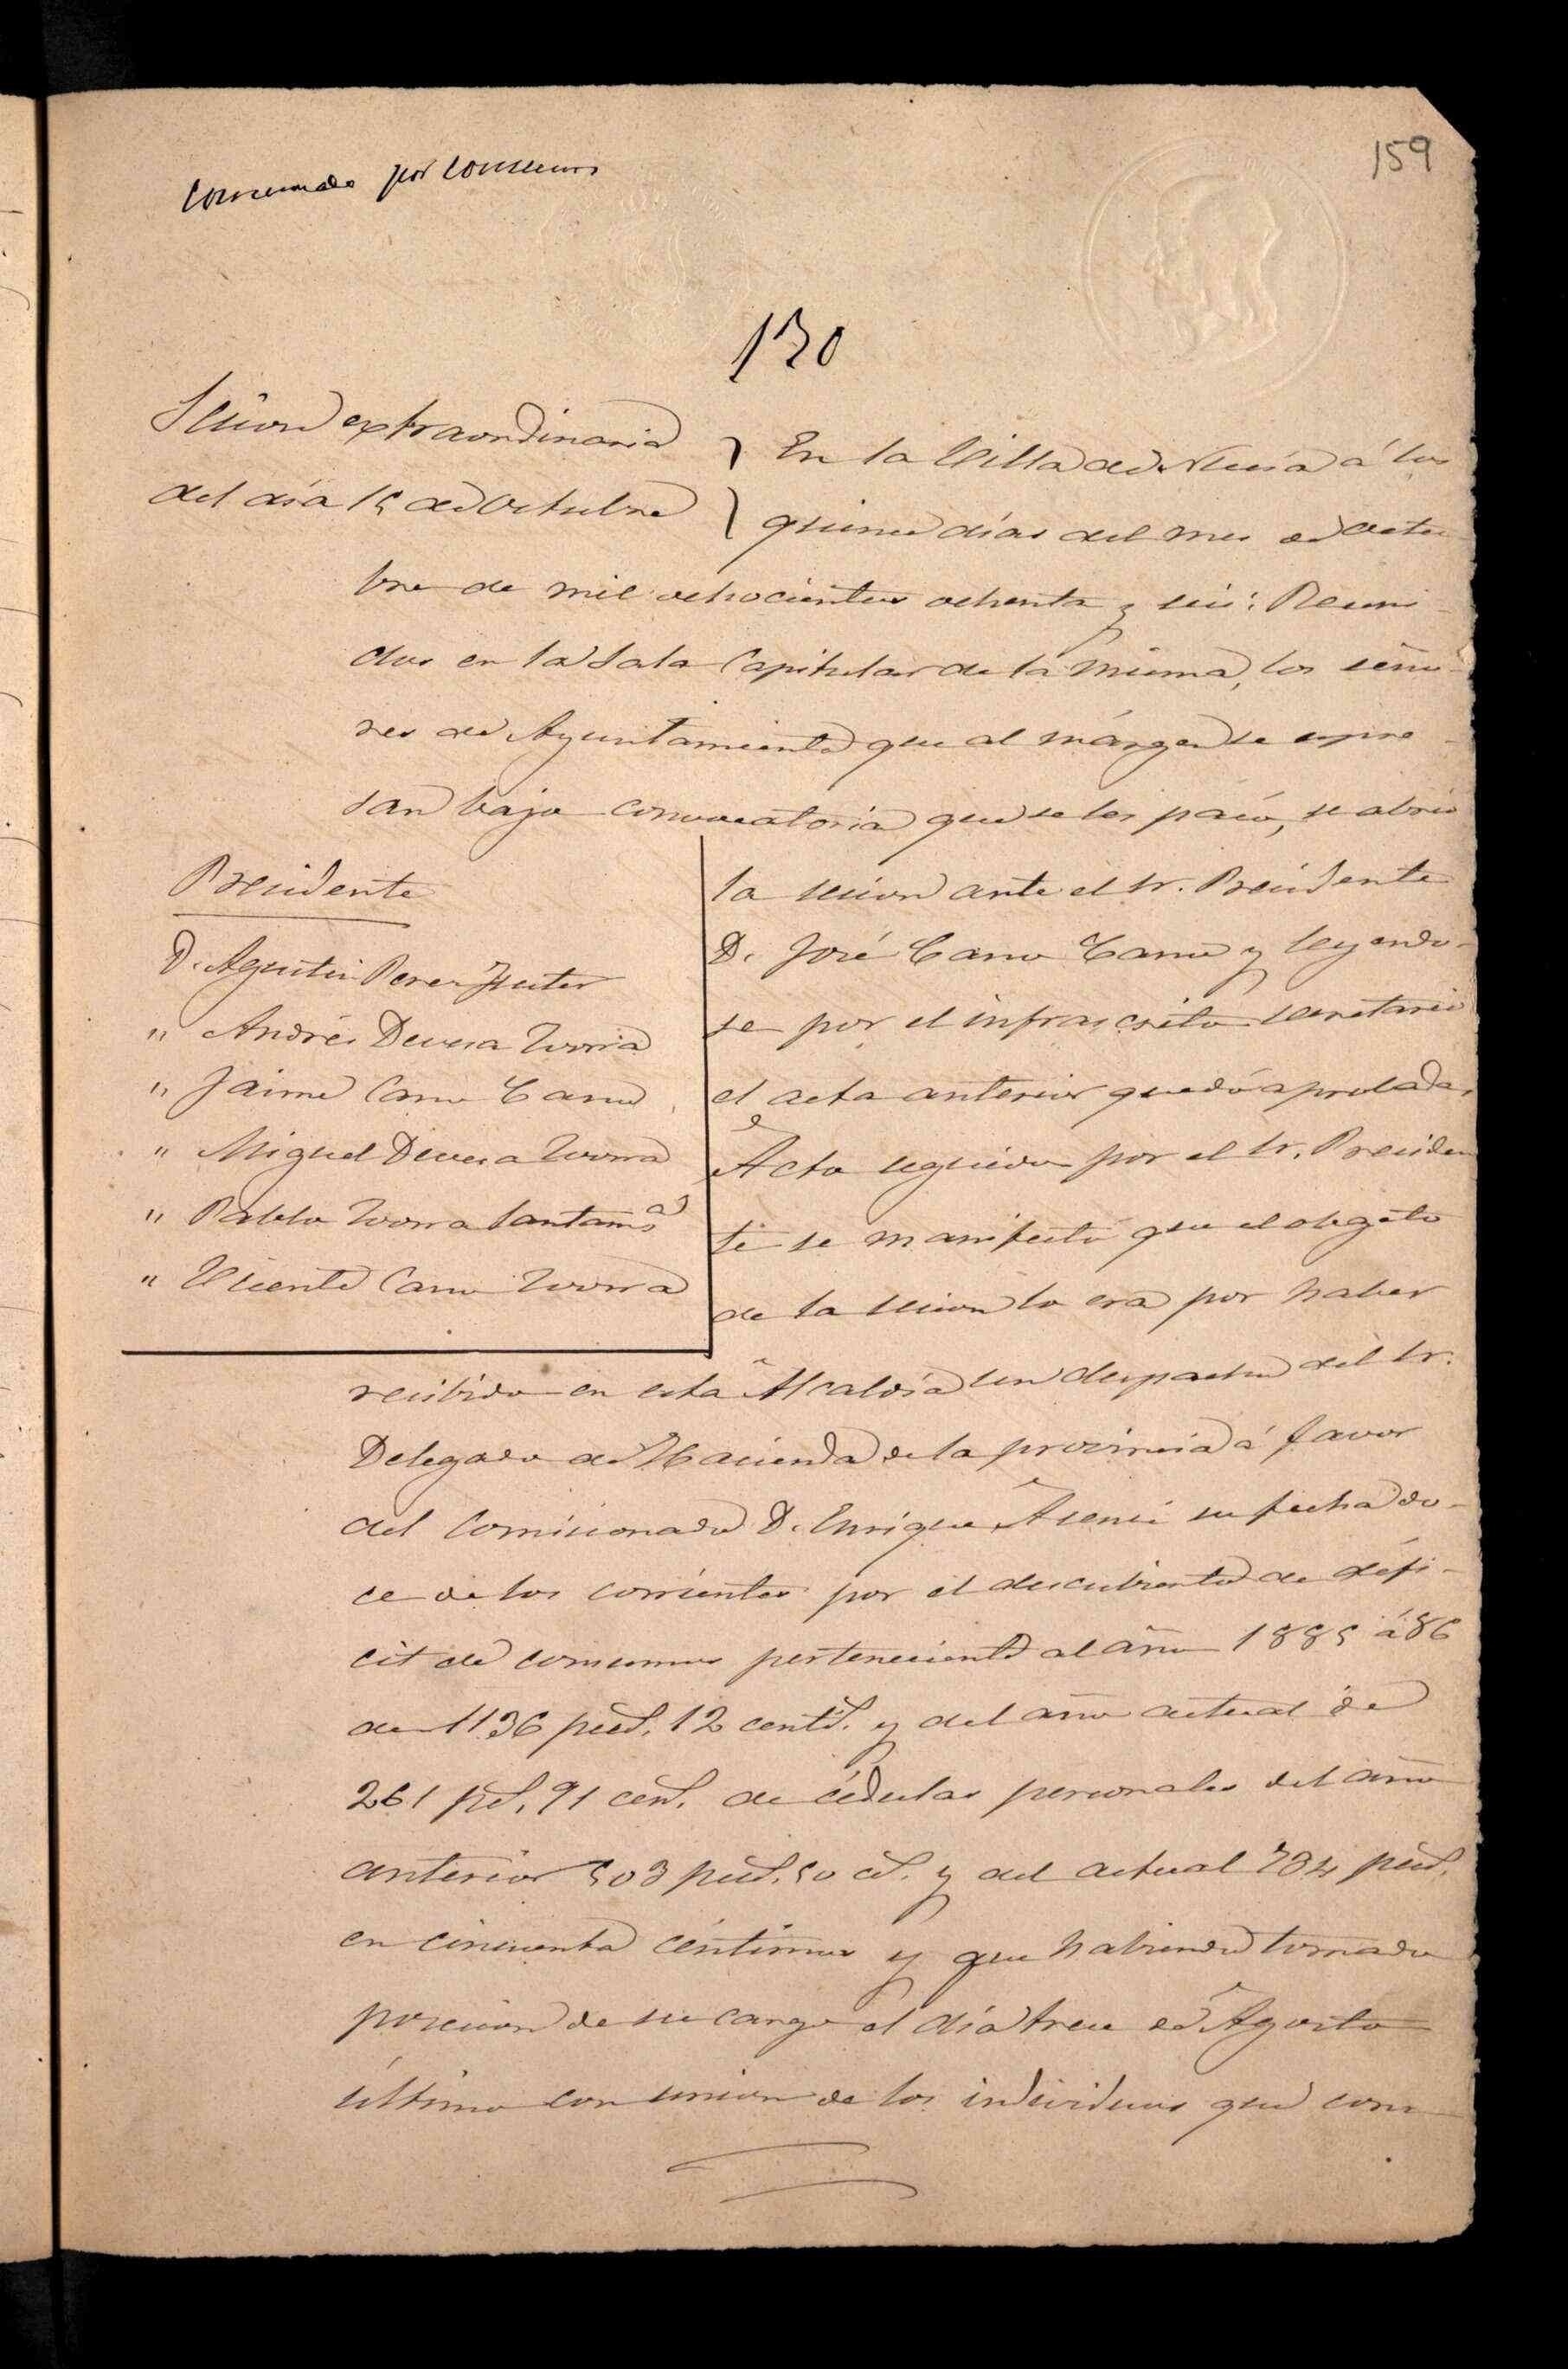 159
Comisionado por consumos
130
Sesion extraordinaria
del día 15 de Octubre
En la Villa de Nucía á los
quince días del mes de Octu-
bre de mil ochocientos ochenta y seis: Reuni-
dos en la Sala Capitular de la misma, los seño-
res de Ayuntamiento que al márgen se expre-
san bajo convocatoria que se les pasó, se abrió
Presidente
D. Agustin Perez Fuster
" Andrés Devesa Llorca
" Jaime Cano Cano
" Miguel Devesa Llorca
" Pablo Llorca Santamª
" Vicente Cano Llorca
la sesion ante el Sr. Presidente
D. José Cano Cano y leyendo-
se por el infrascrito secretario
el acta anterior quedó aprobada.
Acto seguido por el Sr. Presiden
te se manifestó que el obgeto
de la sesion lo era por haber
recibido en esta Alcaldía un despacho del Sr.
Delegado de Hacienda de la provincia á favor
del Comisionado D. Enrique Asensi su fecha do-
ce de los corrientes por el descubierto de défi-
cit de consumos perteneciente al año 1885 á 86
de 1136 peset. 12 cent. y del año actual de
261 pet. 91 cent. de cédulas personales del año
anterior 503 peset. 50 ct. y del actual 784 peset.
en cincuenta céntimos y que habiendo tomado
posesion de su cargo el día trece de Agosto
último con union de los individuos que com